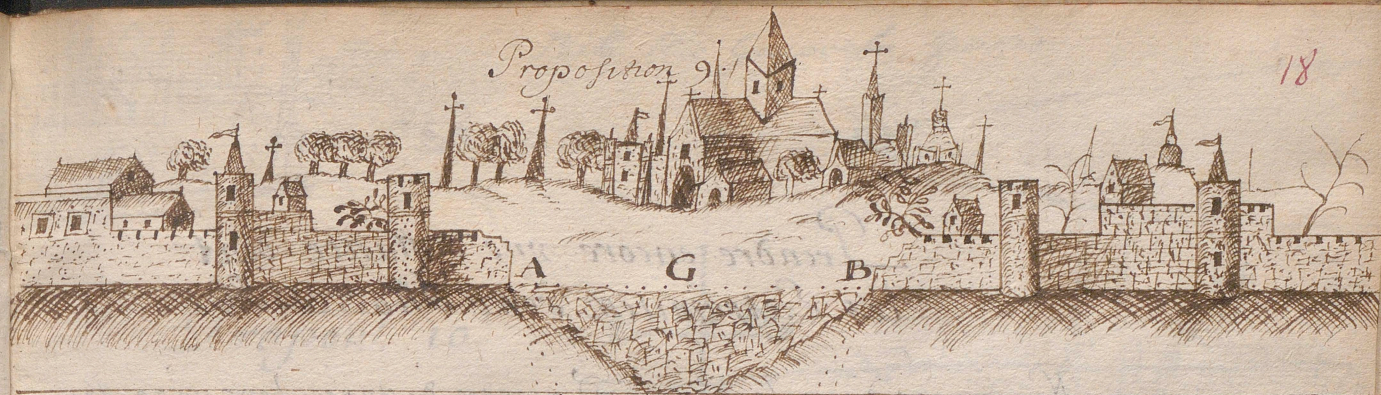 Proposition 9.
18
A G B